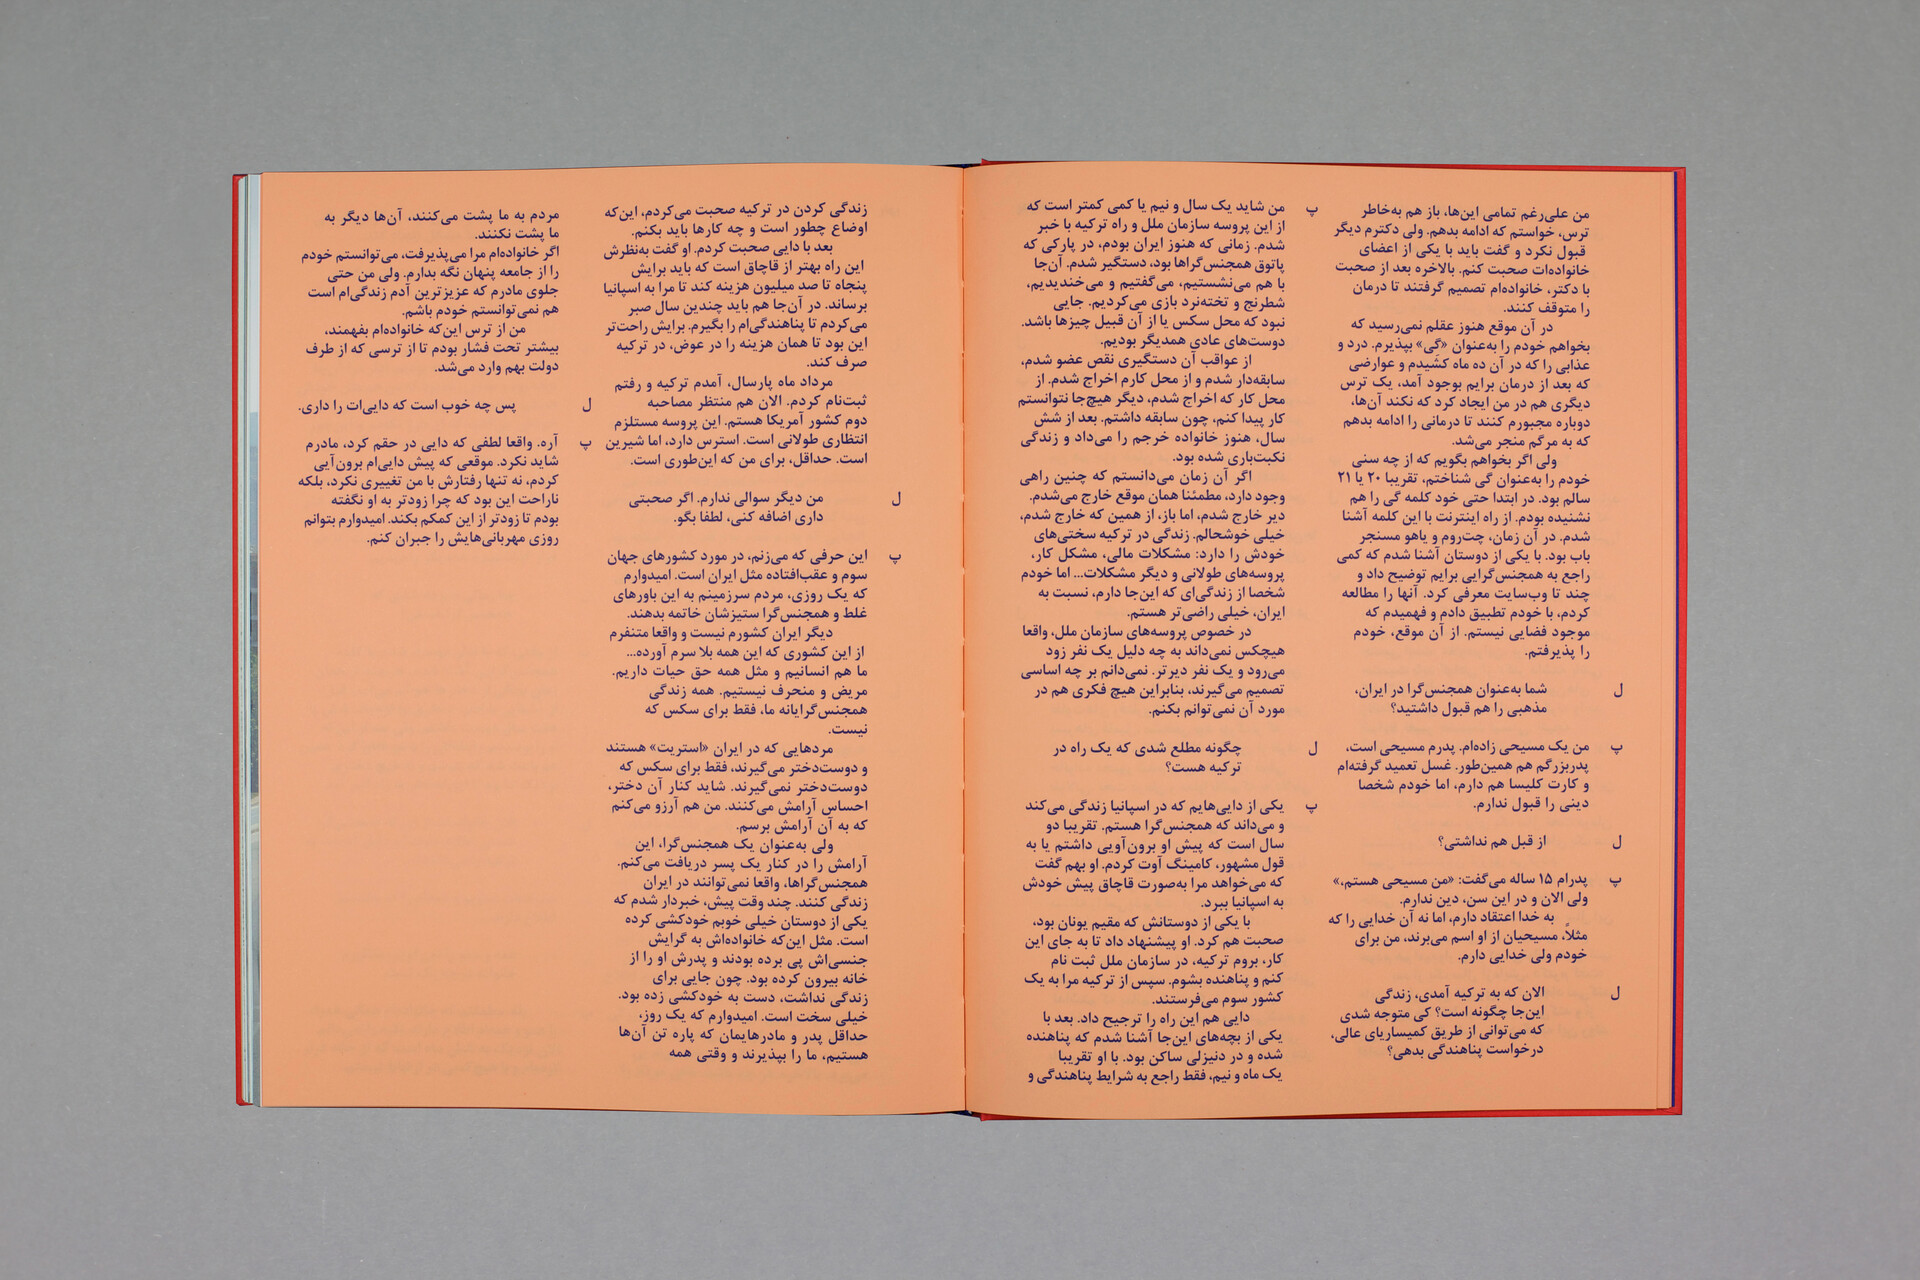 من علی‌رغم تمامی این‌ها، باز هم به‌خاطر
ترس، خواستم که ادامه بدهم. ولی دکترم دیگر
قبول نکرد و گفت باید با یکی از اعضای
خانواده‌ات صحبت کنم. بالاخره بعد از صحبت
با دکتر، خانواده‌ام تصمیم گرفتند تا درمان
را متوقف کنند.
در آن موقع هنوز عقلم نمی‌رسید که
بخواهم خودم را به‌عنوان «گِی» بپذیرم. درد و
عذابی را که در آن ده ماه کشیدم و عوارضی
که بعد از درمان برایم بوجود آمد، یک ترس
دیگری هم در من ایجاد کرد که نکند آن‌ها،
دوباره مجبورم کنند تا درمانی را ادامه بدهم
که به مرگم منجر می‌شد.
ولی اگر بخواهم بگویم که از چه سنی
خودم را به‌عنوان گی شناختم، تقریبا ۲۰ یا ۲۱
سالم بود. در ابتدا حتی خود کلمه گی را هم
نشنیده بودم. از راه اینترنت با این کلمه آشنا
شدم. در آن زمان، چت‌روم و یاهو مسنجر
باب بود. با یکی از دوستان آشنا شدم که کمی
راجع به همجنس‌گرایی برایم توضیح داد و
چند تا وب‌سایت معرفی کرد. آنها را مطالعه
کردم، با خودم تطبیق دادم و فهمیدم که
موجود فضایی نیستم. از آن موقع، خودم
را پذیرفتم.
ل شما به‌عنوان همجنس‌گرا در ایران،
مذهبی را هم قبول داشتید؟
پ من یک مسیحی زاده‌ام. پدرم مسیحی است،
پدربزرگم هم همین‌طور. غسل تعمید گرفته‌ام
و کارت کلیسا هم دارم، اما خودم شخصا
دینی را قبول ندارم.
ل از قبل هم نداشتی؟
پ پدرام ۱۵ ساله می‌گفت: «من مسیحی هستم،»
ولی الان و در این سن، دین ندارم.
به خدا اعتقاد دارم، اما نه آن خدایی را که
مثلاً، مسیحیان از او اسم می‌برند، من برای
خودم ولی خدایی دارم.
ل الان که به ترکیه آمدی، زندگی
این‌جا چگونه است؟ کی متوجه شدی
که می‌توانی از طریق کمیساریای عالی،
درخواست پناهندگی بدهی؟
پ من شاید یک سال و نیم یا کمی کمتر است که
از این پروسه سازمان ملل و راه ترکیه با خبر
شدم. زمانی که هنوز ایران بودم، در پارکی که
پاتوق همجنس‌گراها بود، دستگیر شدم. آن‌جا
با هم می‌نشستیم، می‌گفتیم و می‌خندیدیم،
شطرنج و تخته‌نرد بازی می‌کردیم. جایی
نبود که محل سکس یا از آن قبیل چیزها باشد.
دوست‌های عادی همدیگر بودیم.
از عواقب آن دستگیری نقص عضو شدم،
سابقه‌دار شدم و از محل کارم اخراج شدم. از
محل کار که اخراج شدم، دیگر هیچ‌جا نتوانستم
کار پیدا کنم، چون سابقه داشتم. بعد از شش
سال، هنوز خانواده خرجم را می‌داد و زندگی
نکبت‌باری شده بود.
اگر آن زمان می‌دانستم که چنین راهی
وجود دارد، مطمئنا همان موقع خارج می‌شدم.
دیر خارج شدم، اما باز، از همین که خارج شدم،
خیلی خوشحالم. زندگی در ترکیه سختی‌های
خودش را دارد: مشکلات مالی، مشکل کار،
پروسه‌های طولانی و دیگر مشکلات... اما خودم
شخصا از زندگی‌ای که این‌جا دارم، نسبت به
ایران، خیلی راضی‌تر هستم.
در خصوص پروسه‌های سازمان ملل، واقعا
هیچکس نمی‌داند به چه دلیل یک نفر زود
می‌رود و یک نفر دیرتر. نمی‌دانم بر چه اساسی
تصمیم می‌گیرند، بنابراین هیچ فکری هم در
مورد آن نمی‌توانم بکنم.
ل چگونه مطلع شدی که یک راه در
ترکیه هست؟
پ یکی از دایی‌هایم که در اسپانیا زندگی می‌کند
و می‌داند که همجنس‌گرا هستم. تقریبا دو
سال است که پیش او برون‌آویی داشتم یا به
قول مشهور، کامینگ آوت کردم. او بهم گفت
که می‌خواهد مرا به‌صورت قاچاق پیش خودش
به اسپانیا ببرد.
با یکی از دوستانش که مقیم یونان بود،
صحبت هم کرد. او پیشنهاد داد تا به جای این
کار، بروم ترکیه، در سازمان ملل ثبت نام
کنم و پناهنده بشوم. سپس از ترکیه مرا به یک
کشور سوم می‌فرستند.
دایی هم این راه را ترجیح داد. بعد با
یکی از بچه‌های این‌جا آشنا شدم که پناهنده
شده و در دنیزلی ساکن بود. با او تقریبا
یک ماه و نیم، فقط راجع به شرایط پناهندگی و
زندگی کردن در ترکیه صحبت می‌کردم، این‌که
اوضاع چطور است و چه کارها باید بکنم.
بعد با دایی صحبت کردم. او گفت به‌نظرش
این راه بهتر از قاچاق است که باید برایش
پنجاه تا صد میلیون هزینه کند تا مرا به اسپانیا
برساند. در آن‌جا هم باید چندین سال صبر
می‌کردم تا پناهندگی‌ام را بگیرم. برایش راحت‌تر
این بود تا همان هزینه را در عوض، در ترکیه
صرف کند.
مرداد ماه پارسال، آمدم ترکیه و رفتم
ثبت‌نام کردم. الان هم منتظر مصاحبه
دوم کشور آمریکا هستم. این پروسه مستلزم
انتظاری طولانی است. استرس دارد، اما شیرین
است. حداقل، برای من که این‌طوری است.
ل من دیگر سوالی ندارم. اگر صحبتی
داری اضافه کنی، لطفا بگو.
پ این حرفی که می‌زنم، در مورد کشورهای جهان
سوم و عقب‌افتاده مثل ایران است. امیدوارم
که یک روزی، مردم سرزمینم به این باورهای
غلط و همجنس‌گرا ستیزشان خاتمه بدهند.
دیگر ایران کشورم نیست و واقعا متنفرم
از این کشوری که این همه بلا سرم آورده...
ما هم انسانیم و مثل همه حق حیات داریم.
مریض و منحرف نیستیم. همه زندگی
همجنس‌گرایانه ما، فقط برای سکس که
نیست.
مردهایی که در ایران «استریت» هستند
و دوست‌دختر می‌گیرند، فقط برای سکس که
دوست‌دختر نمی‌گیرند. شاید کنار آن دختر،
احساس آرامش می‌کنند. من هم آرزو می‌کنم
که به آن آرامش برسم.
ولی به‌عنوان یک همجنس‌گرا، این
آرامش را در کنار یک پسر دریافت می‌کنم.
همجنس‌گراها، واقعا نمی‌توانند در ایران
زندگی کنند. چند وقت پیش، خبردار شدم که
یکی از دوستان خیلی خوبم خودکشی کرده
است. مثل این‌که خانواده‌اش به گرایش
جنسی‌اش پی برده بودند و پدرش او را از
خانه بیرون کرده بود. چون جایی برای
زندگی نداشت، دست به خودکشی زده بود.
خیلی سخت است. امیدوارم که یک روز،
حداقل پدر و مادرهایمان که پاره تن آن‌ها
هستیم، ما را بپذیرند و وقتی همه
مردم به ما پشت می‌کنند، آن‌ها دیگر به
ما پشت نکنند.
اگر خانواده‌ام مرا می‌پذیرفت، می‌توانستم خودم
را از جامعه پنهان نگه بدارم. ولی من حتی
جلوی مادرم که عزیزترین آدم زندگی‌ام است
هم نمی‌توانستم خودم باشم.
من از ترس این‌که خانواده‌ام بفهمند،
بیشتر تحت فشار بودم تا از ترسی که از طرف
دولت بهم وارد می‌شد.
ل پس چه خوب است که دایی‌ات را داری.
پ آره. واقعا لطفی که دایی در حقم کرد، مادرم
شاید نکرد. موقعی که پیش دایی‌ام برون‌آیی
کردم، نه تنها رفتارش با من تغییری نکرد، بلکه
ناراحت این بود که چرا زودتر به او نگفته
بودم تا زودتر از این کمکم بکند. امیدوارم بتوانم
روزی مهربانی‌هایش را جبران کنم.